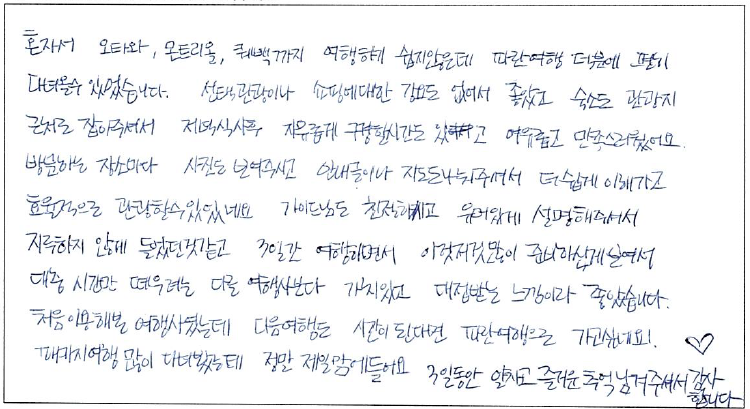 혼자서 오타와, 몬트리올, 퀘백까지 여행하기 쉽지않은데 파란여행 덕분에 편히
다녀올수 있었습니다. 선택관광이나 쇼핑에대한 강요도 없어서 좋았고 숙소도 관광지
근처로 잡아주셔서 저녁식사후 자유롭게 구경할시간도 있고 여유롭고 만족스러웠어요.
방문하는 장소마다 사진도 보여주시고 안내글이나 지도도나눠주셔서 더쉽게 이해가고
효율적으로 관광할수있었네요 가이드님도 친절하시고 유머있게 설명해주셔서
지루하지 않게 들었던것같고 3일간 여행하면서 이것저것많이 준비하신게보여서
대충 시간만 떼우려는 다른 여행사보다 가치있고 대접받는 느낌이라 좋았습니다.
처음이용해본 여행사였는데 다음여행도 시간이 된다면 파란여행으로 가고싶네요! ♡
패키지여행 많이 다녀봤는데 정말 제일맘에들어요 3일동안 알차고 즐거운 추억 남겨주셔서 감사
합니다